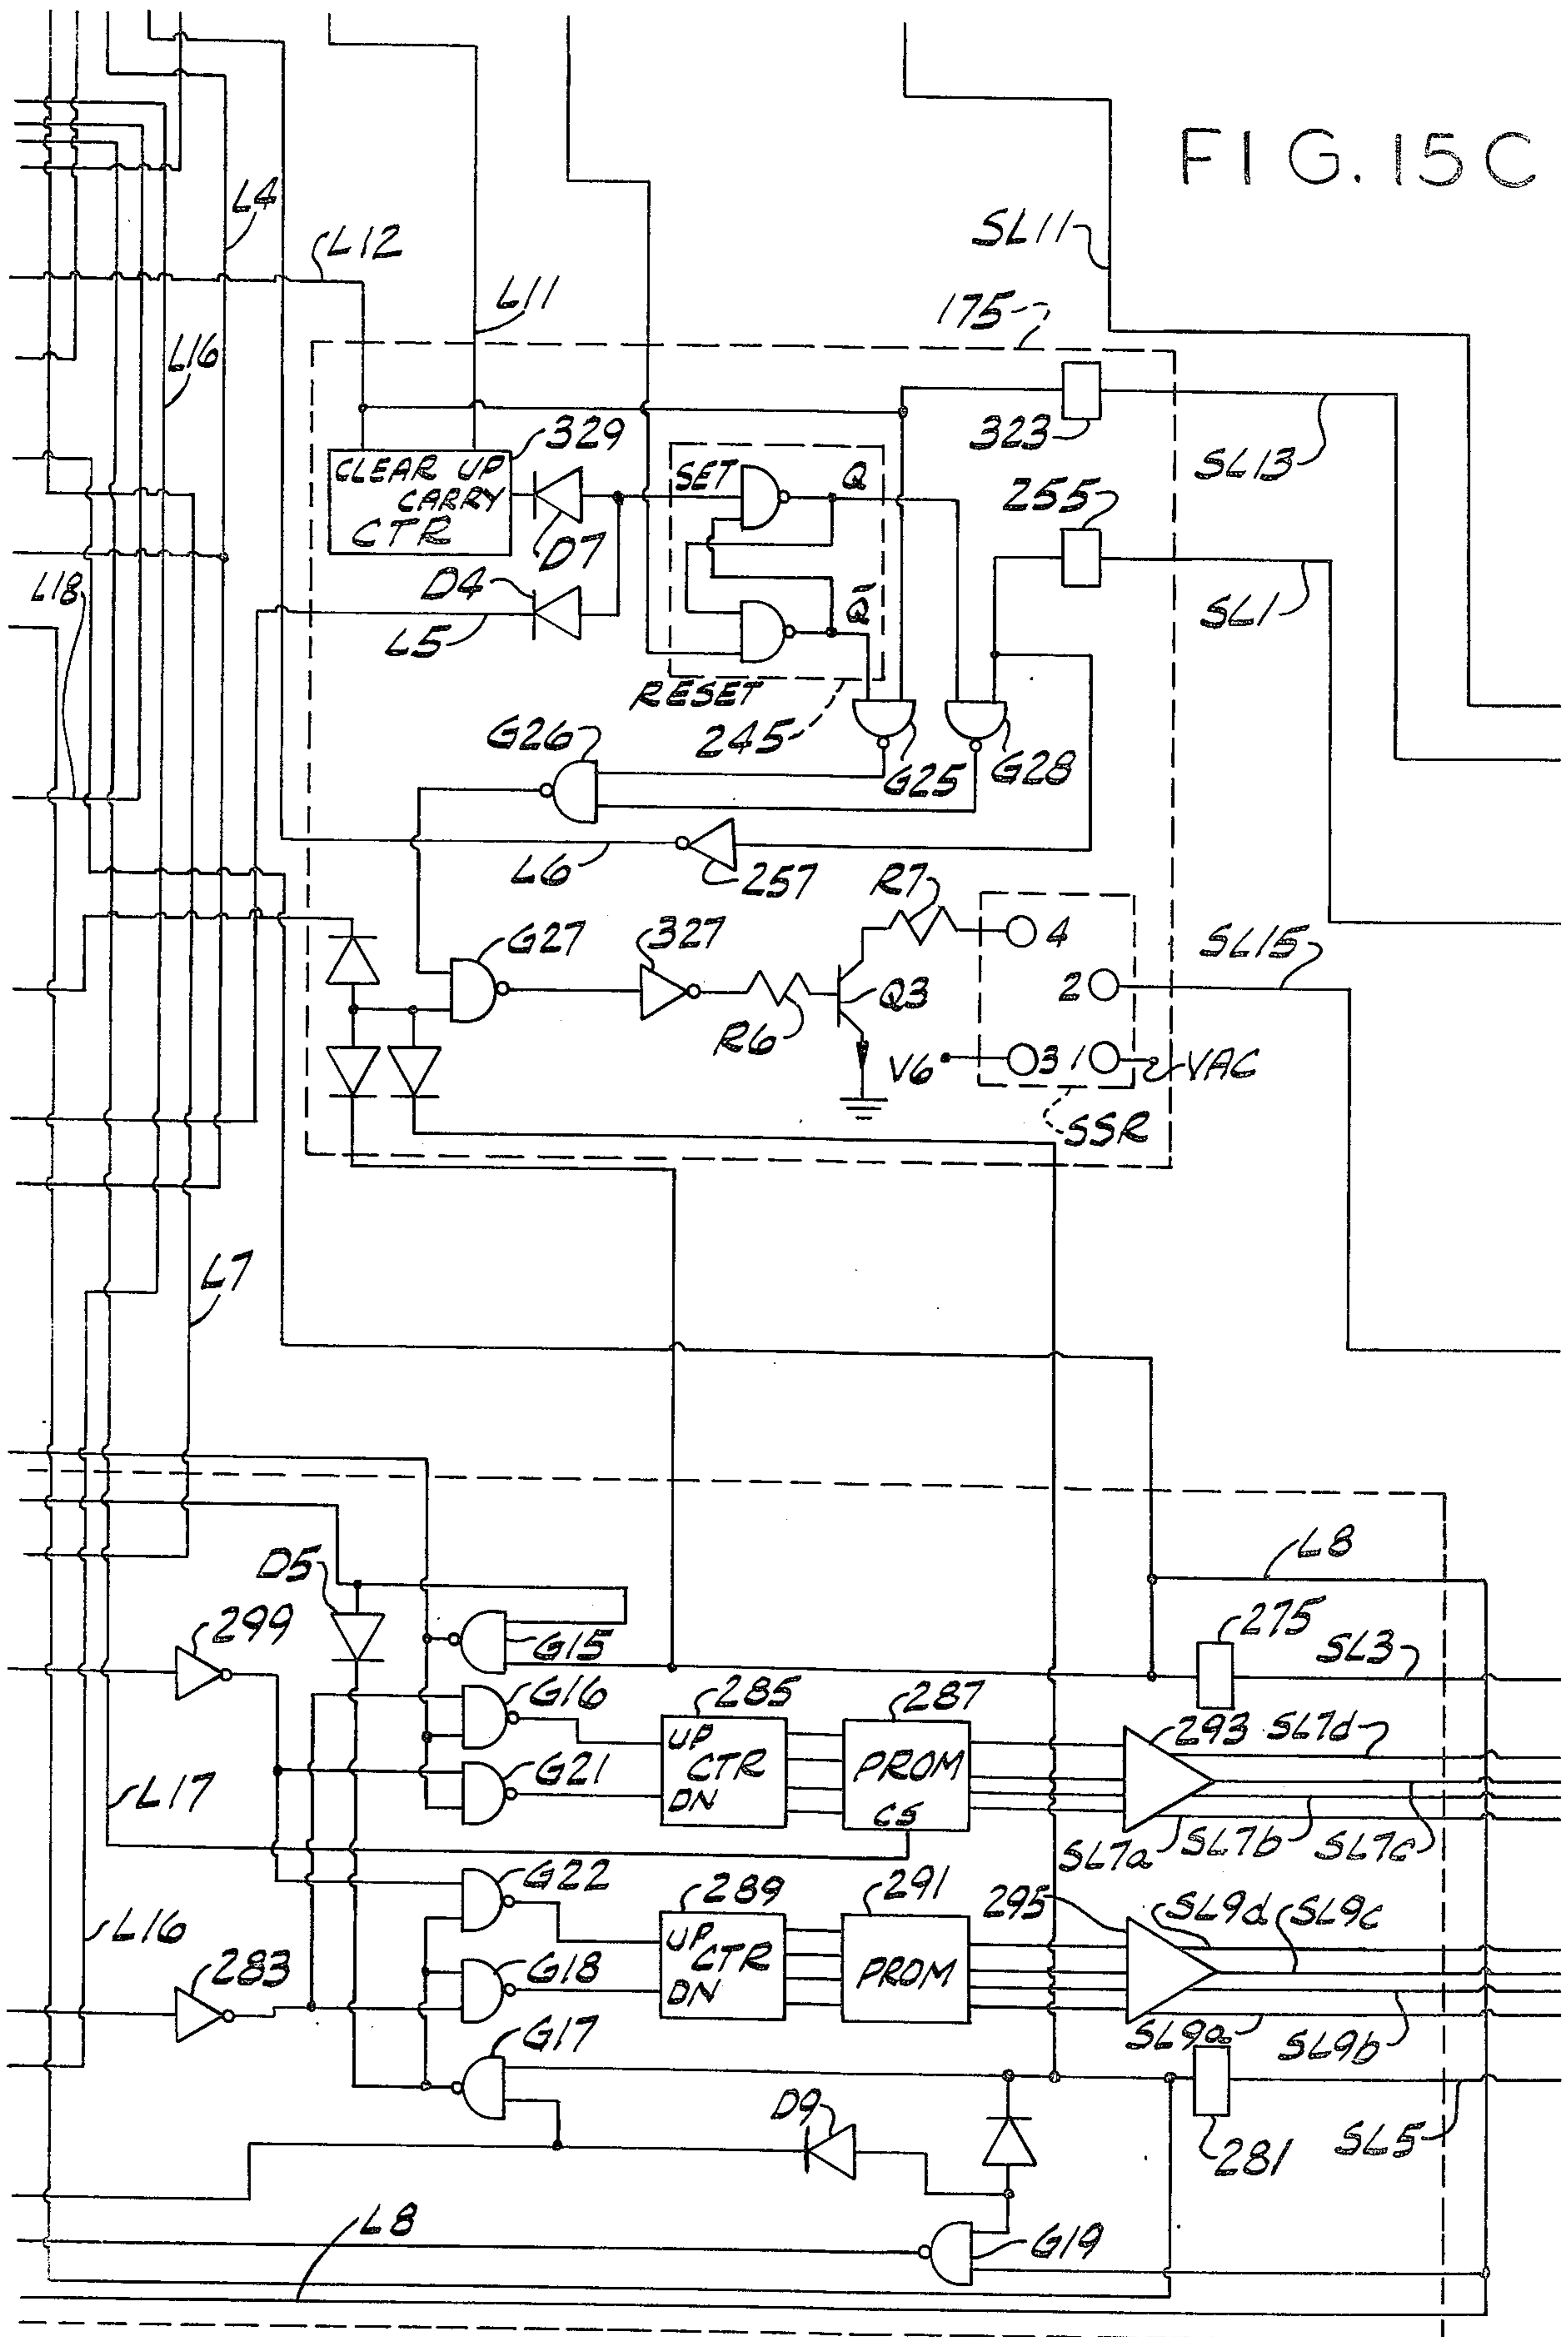 FIG. 15C
L4
SL11
L12
L11
175
L16
329
323
SL13
CLEAR UP
CARRY
CTR
SET
Q
D7
255
D4
L18
Q̄
L5
SL1
RESET
245
G26
G25
G28
L6
257
R7
G27
327
4
SL15
2
Q3
R6
V6
3
1
VAC
SSR
L7
L8
D5
275
299
G15
SL3
G16
285
287
293
SL7d
UP
CTR
DN
PROM
CS
G21
L17
SL7a
SL7b
SL7c
G22
289
291
295
SL9d
SL9c
L16
UP
CTR
DN
PROM
283
G18
G17
SL9a
SL9b
D9
281
SL5
L8
G19